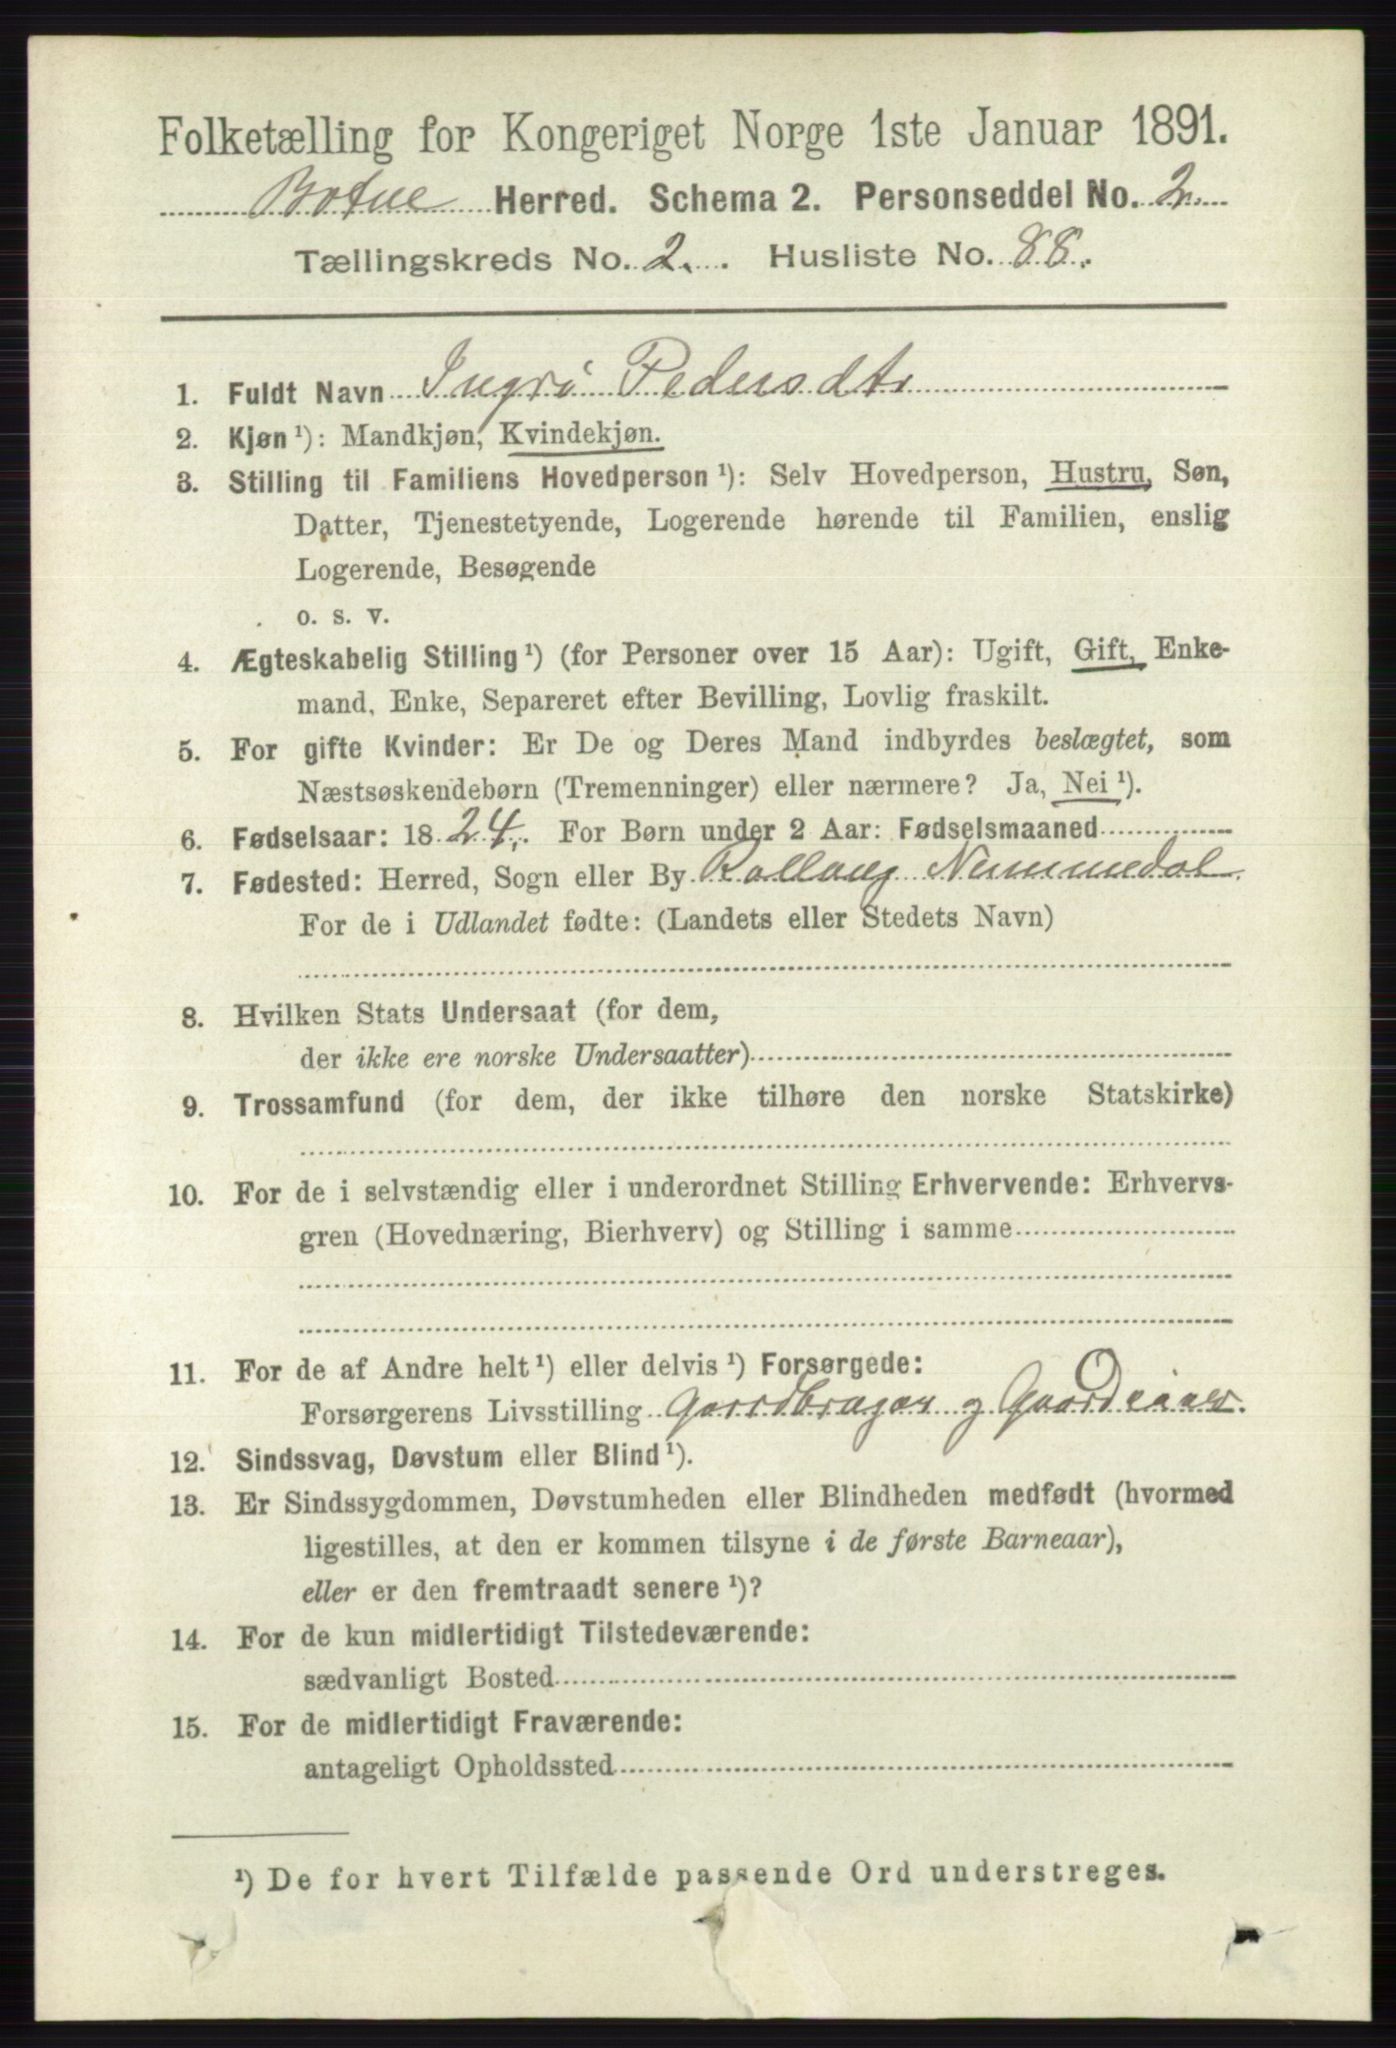 Folketælling for Kongeriget Norge 1ste Januar 1891.
Botne Herred. Schema 2. Personseddel No. 2.
Tællingskreds No. 2. Husliste No. 88.
1. Fuldt Navn Ingrø Pedersdtr
2. Kjøn ¹): Mandkjøn, Kvindekjøn.
3. Stilling til Familiens Hovedperson ¹): Selv Hovedperson, Hustru, Søn,
Datter, Tjenestetyende, Logerende hørende til Familien, enslig
Logerende, Besøgende
o. s. v.
4. Ægteskabelig Stilling ¹) (for Personer over 15 Aar): Ugift, Gift, Enke-
mand, Enke, Separeret efter Bevilling, Lovlig fraskilt.
5. For gifte Kvinder: Er De og Deres Mand indbyrdes beslægtet, som
Næstsøskendebørn (Tremenninger) eller nærmere? Ja, Nei ¹).
6. Fødselsaar: 1824. For Børn under 2 Aar: Fødselsmaaned
7. Fødested: Herred, Sogn eller By Rollaug Nummedal
For de i Udlandet fødte: (Landets eller Stedets Navn)
8. Hvilken Stats Undersaat (for dem,
der ikke ere norske Undersaatter)
9. Trossamfund (for dem, der ikke tilhøre den norske Statskirke)
10. For de i selvstændig eller i underordnet Stilling Erhvervende: Erhvervs-
gren (Hovednæring, Bierhverv) og Stilling i samme
11. For de af Andre helt ¹) eller delvis ¹) Forsørgede:
Forsørgerens Livsstilling Gaardbruger og Gaardeiaer
12. Sindssvag, Døvstum eller Blind ¹).
13. Er Sindssygdommen, Døvstumheden eller Blindheden medfødt (hvormed
ligestilles, at den er kommen tilsyne i de første Barneaar),
eller er den fremtraadt senere ¹)?
14. For de kun midlertidigt Tilstedeværende:
sædvanligt Bosted
15. For de midlertidigt Fraværende:
antageligt Opholdssted
¹) De for hvert Tilfælde passende Ord understreges.